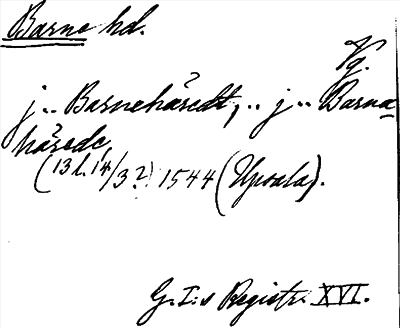 Barne hd.
Vg.
j .. Barnehäredt, .. j .. Barna-
härede
(13 l. 14/3 ?) 1544 (Upsala).
G. I:s Registr. XVI.